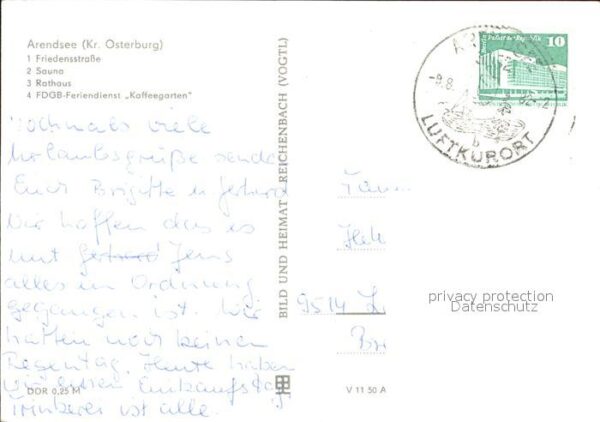 Arendsee (Kr. Osterburg)
1 Friedensstraße
2 Sauna
3 Rathaus
4 FDGB-Feriendienst „Kaffeegarten"
Nochmals viele
Urlaubsgrüße sendet
Euch Brigitte u. Gerhard
Wir hoffen das es
mit Gerhard Jens
alles in Ordnung
gegangen ist. Wir
hatten noch keinen
Regentag. Heute haben
wir einen Einkaufstag
Imkerei ist alle.
DDR 0,25 M
BILD UND HEIMAT REICHENBACH (VOGTL)
V 11 50 A
10
-9.8.
LUFTKURORT
b
Fam
9514
privacy protection
Datenschutz